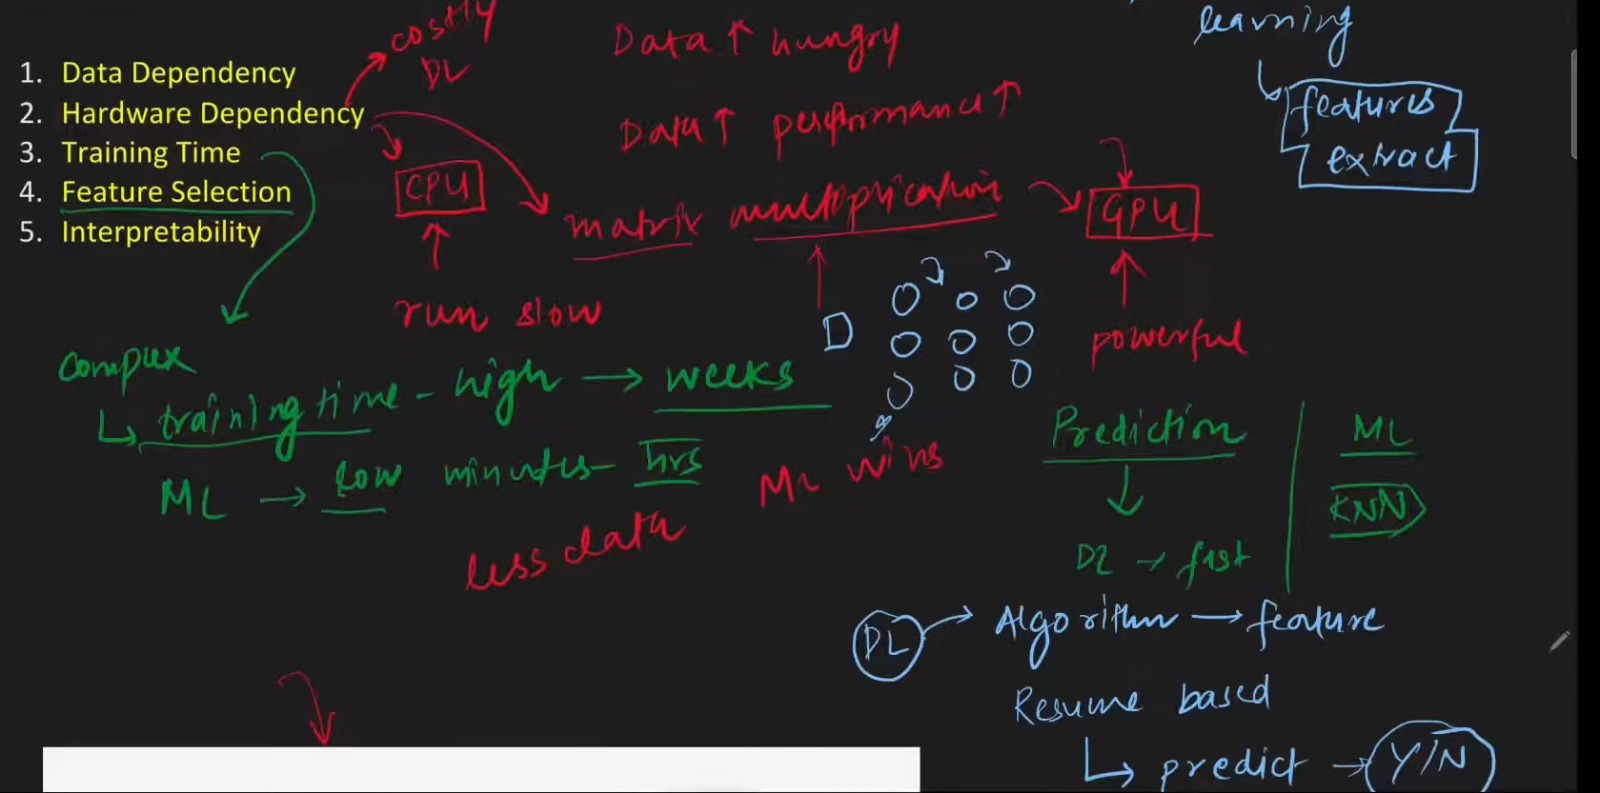 1. Data Dependency
2. Hardware Dependency
3. Training Time
4. Feature Selection
5. Interpretability
costly
DL
Data ↑ hungry
Data ↑ performance ↑
learning
features
extract
CPU
matrix multiplication
GPU
run slow
powerful
D
complex
training time - high → weeks
ML → low minutes - hrs
less data
ML wins
Prediction
DL → fast
ML
KNN
DL → Algorithm → feature
Resume based
predict → Y/N